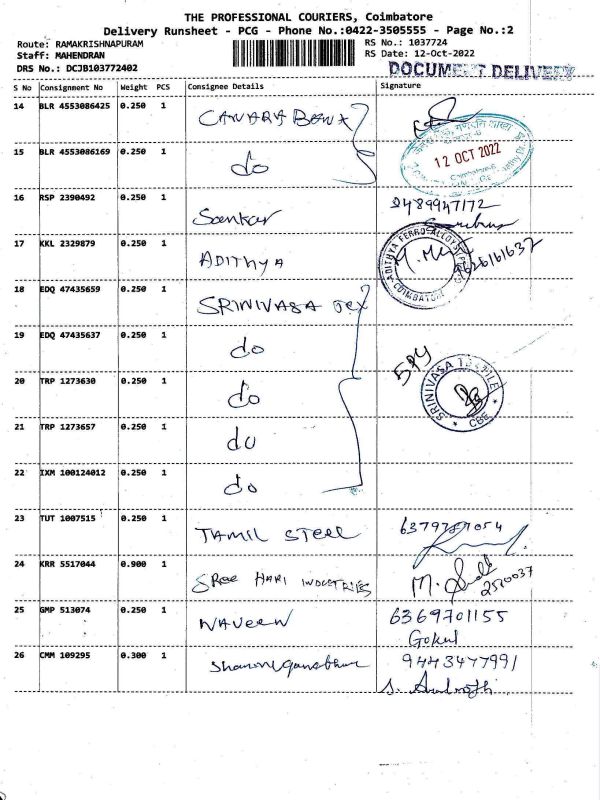 THE PROFESSIONAL COURIERS, Coimbatore
Delivery Runsheet - PCG - Phone No.:0422-3505555 - Page No.:2
Route: RAMAKRISHNAPURAM RS No.: 1037724
Staff: MAHENDRAN RS Date: 12-Oct-2022
DRS No.: DCJB103772402 DOCUMENT DELIVERY
S No Consignment No Weight PCS Consignee Details Signature
14 BLR 4553086425 0.250 1 CANARA BANK
12 OCT 2022
15 BLR 4553086169 0.250 1 do
16 RSP 2390492 0.250 1 Sankar 9489947172
17 KKL 2329879 0.250 1 ADITHYA
ADITHYA FERRO ALLOYS COIMBATORE 9626161637
18 EDQ 47435659 0.250 1 SRINIVASA Tex
19 EDQ 47435637 0.250 1 do
20 TRP 1273630 0.250 1 do
SRINIVASA TEXTILE CBE
21 TRP 1273657 0.250 1 do
22 IXM 100124012 0.250 1 do
23 TUT 1007515 0.250 1 TAMIL STEEL
24 KRR 5517044 0.900 1 SREE HARI INDUSTRIES 2520037
25 GMP 513074 0.250 1 NAVEEN 6369701155
Gokul
26 CMM 109295 0.300 1 9443477991